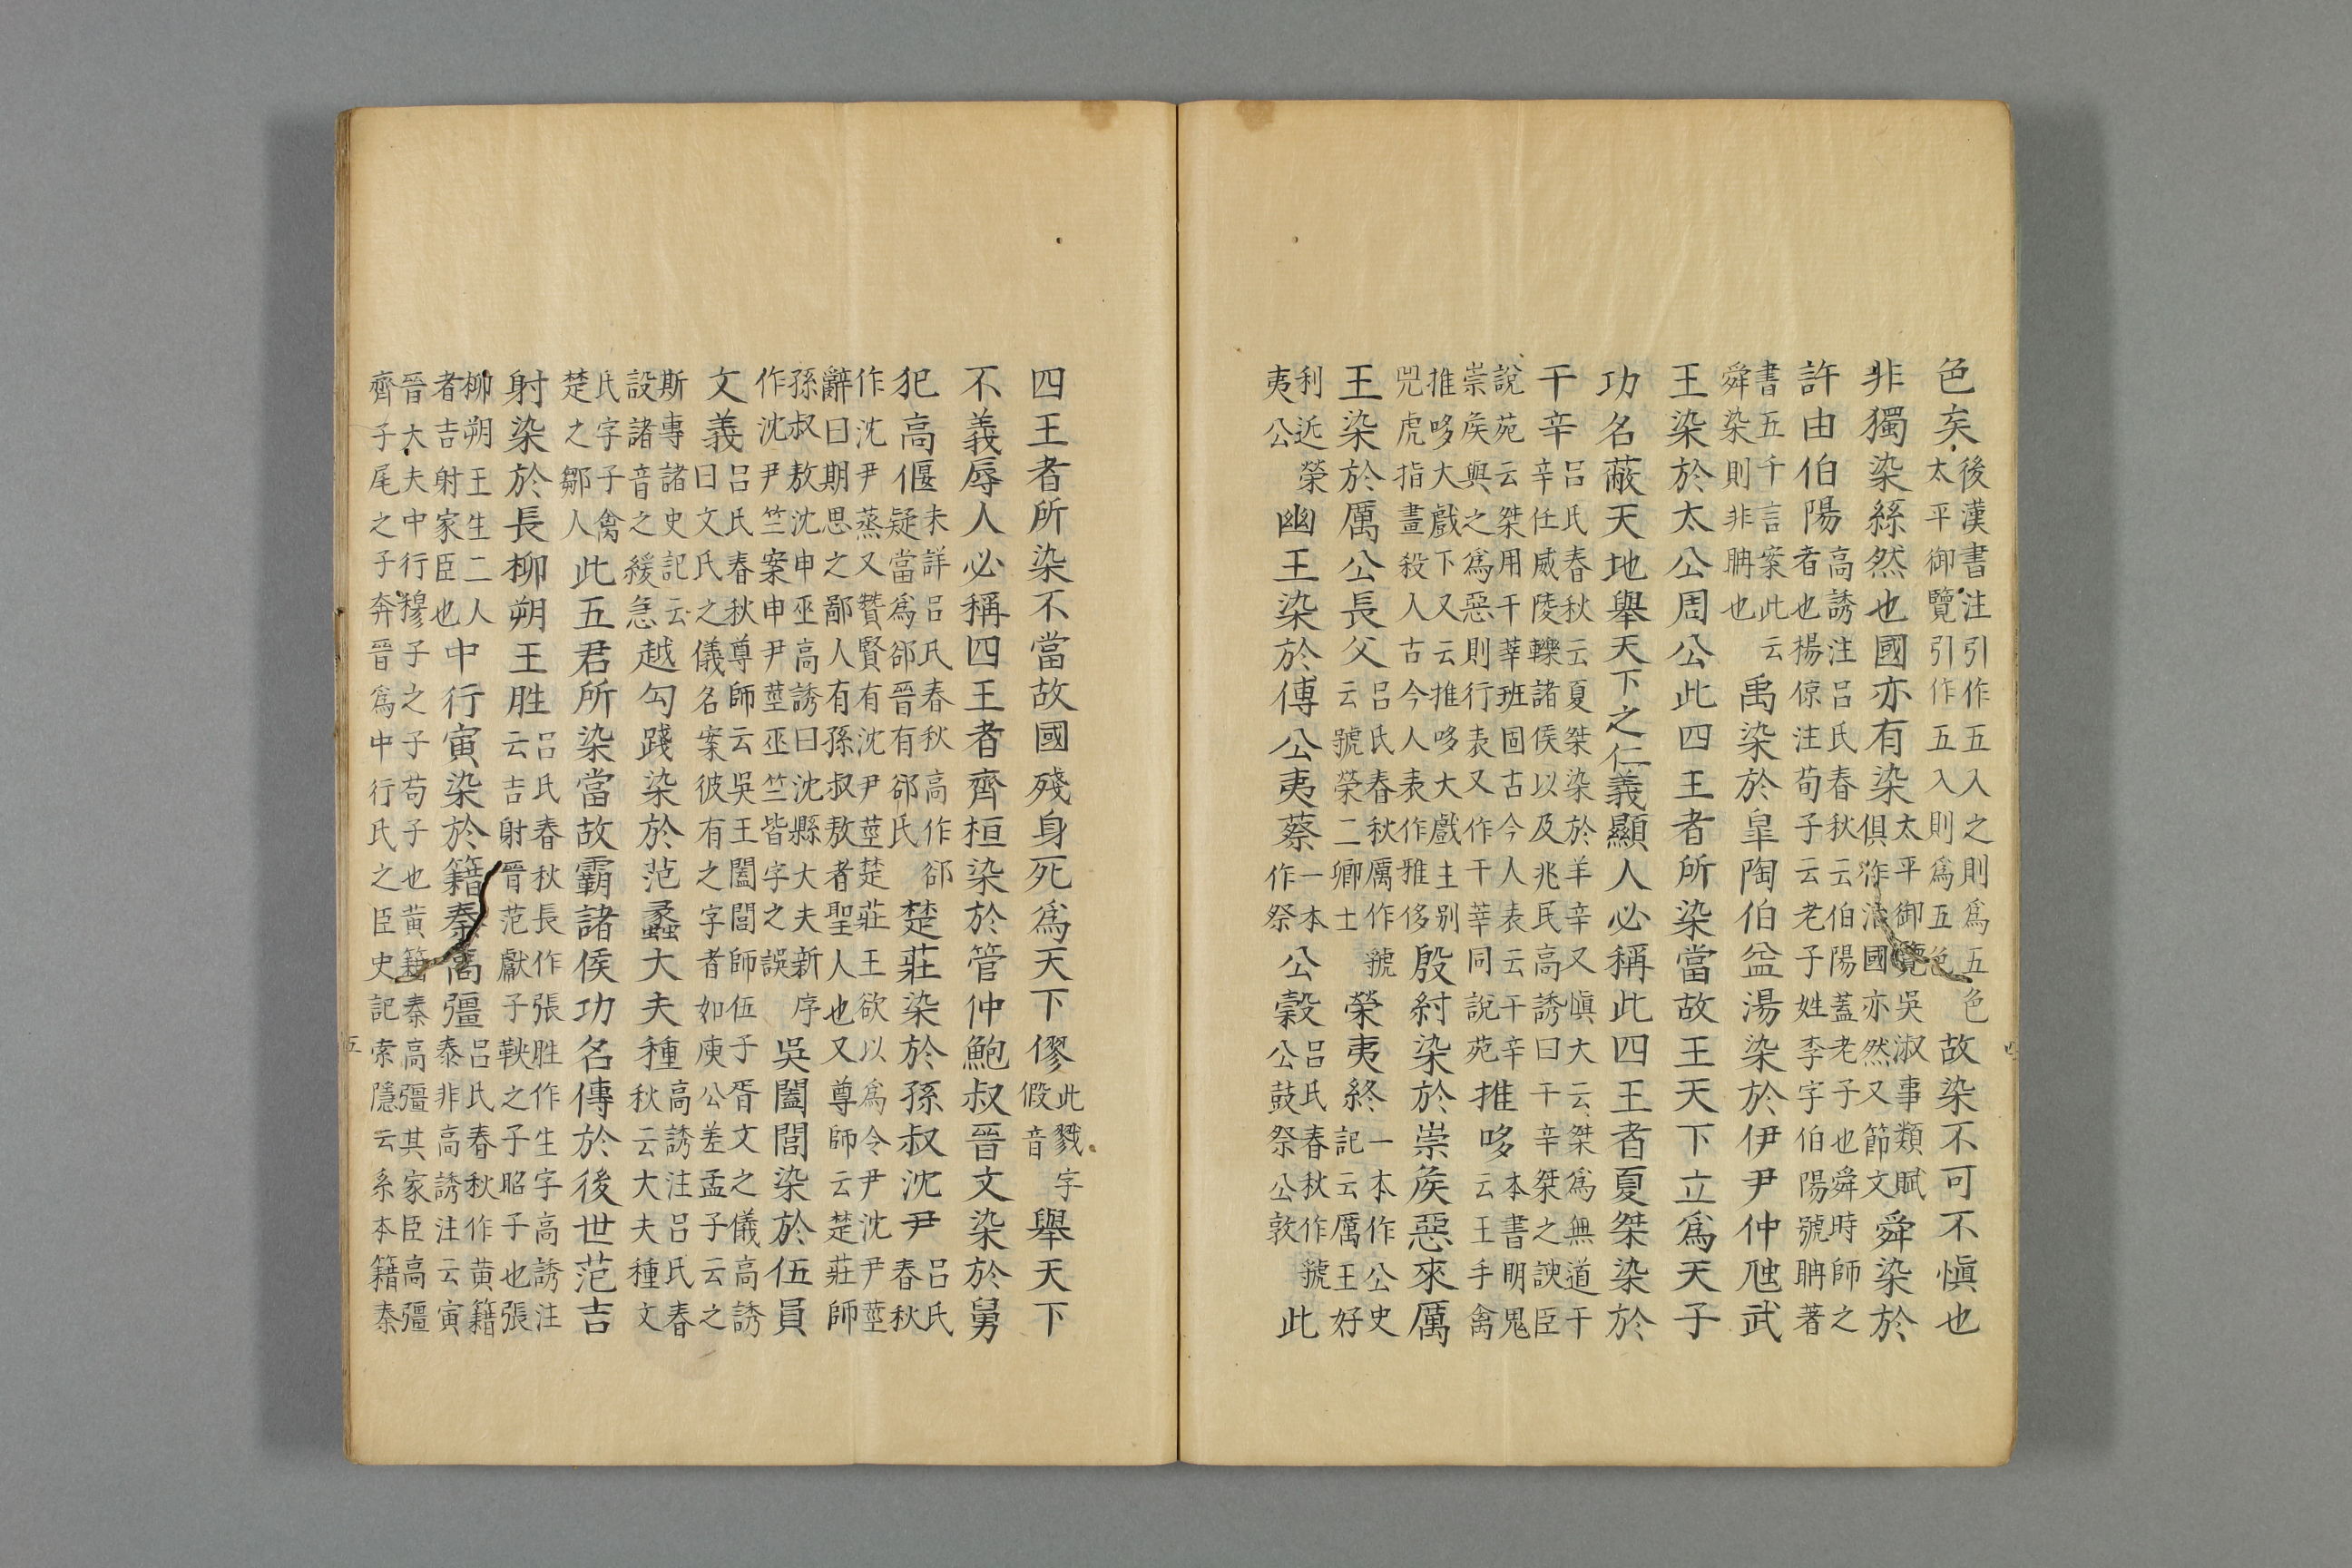 色矣後漢書注引作五入之則爲五色太平御覽引作五入則爲五色故染不可不愼也
非獨染絲然也國亦有染太平御覽吳淑事類賦俱作治國亦然又節文舜染於
許由伯陽高誘注呂氏春秋云伯陽蓋老子也舜時師之者也楊倞注荀子云老子姓李字伯陽號聃著
書五千言案此云舜染則非聃也禹染於皐陶伯益湯染於伊尹仲虺武
王染於太公周公此四王者所染當故王天下立爲天子
功名蔽天地舉天下之仁義顯人必稱此四王者夏桀染於
干辛呂氏春秋云夏桀染於羊辛又愼大云桀爲無道干辛任威陵轢諸侯以及兆民高誘曰干辛桀之諛臣
說苑云桀用干莘班固古今人表云干辛崇矦與之爲惡則行表又作干莘同說苑推哆本書明鬼云王手禽
推哆大戲下又云推哆大戲主别兕虎指畫殺人古今人表作雅侈殷紂染於崇矦惡來厲
王染於厲公長父呂氏春秋厲作虢云虢榮二卿士榮夷終一本作公史記云厲王好
利近榮夷公幽王染於傅公夷蔡一本作祭公穀呂氏春秋作虢公鼓祭公敦此
四王者所染不當故國殘身死爲天下僇此戮字假音舉天下
不義辱人必稱四王者齊桓染於管仲鮑叔晉文染於舅
犯高偃未詳呂氏春秋高作郤疑當爲郤晉有郤氏楚莊染於孫叔沈尹呂氏春秋
作沈尹蒸又贊賢有沈尹莖楚莊王欲以爲令尹沈尹莖辭曰期思之鄙人有孫叔敖者聖人也又尊師云楚莊師
孫叔敖沈申巫高誘曰沈縣大夫新序作沈尹竺案申尹莖巫竺皆字之誤吳闔閭染於伍員
文義呂氏春秋尊師云吳王闔閭師伍子胥文之儀高誘曰文氏之儀名案彼有之字者如庾公差孟子云之
斯專諸史記云設諸音之緩急越勾踐染於范蠡大夫種高誘注呂氏春秋云大夫種文
氏字子禽楚之鄒人此五君所染當故霸諸侯功名傳於後世范吉
射染於長柳朔王胜呂氏春秋長作張胜作生字高誘注云吉射晉范獻子鞅之子昭子也張
柳朔王生二人者吉射家臣也中行寅染於籍秦高彊呂氏春秋作黃籍秦非高誘注云寅
晉大夫中行穆子之子荀子也黃籍秦高彊其家臣高彊齊子尾之子奔晉爲中行氏之臣史記索隱云系本籍秦
五